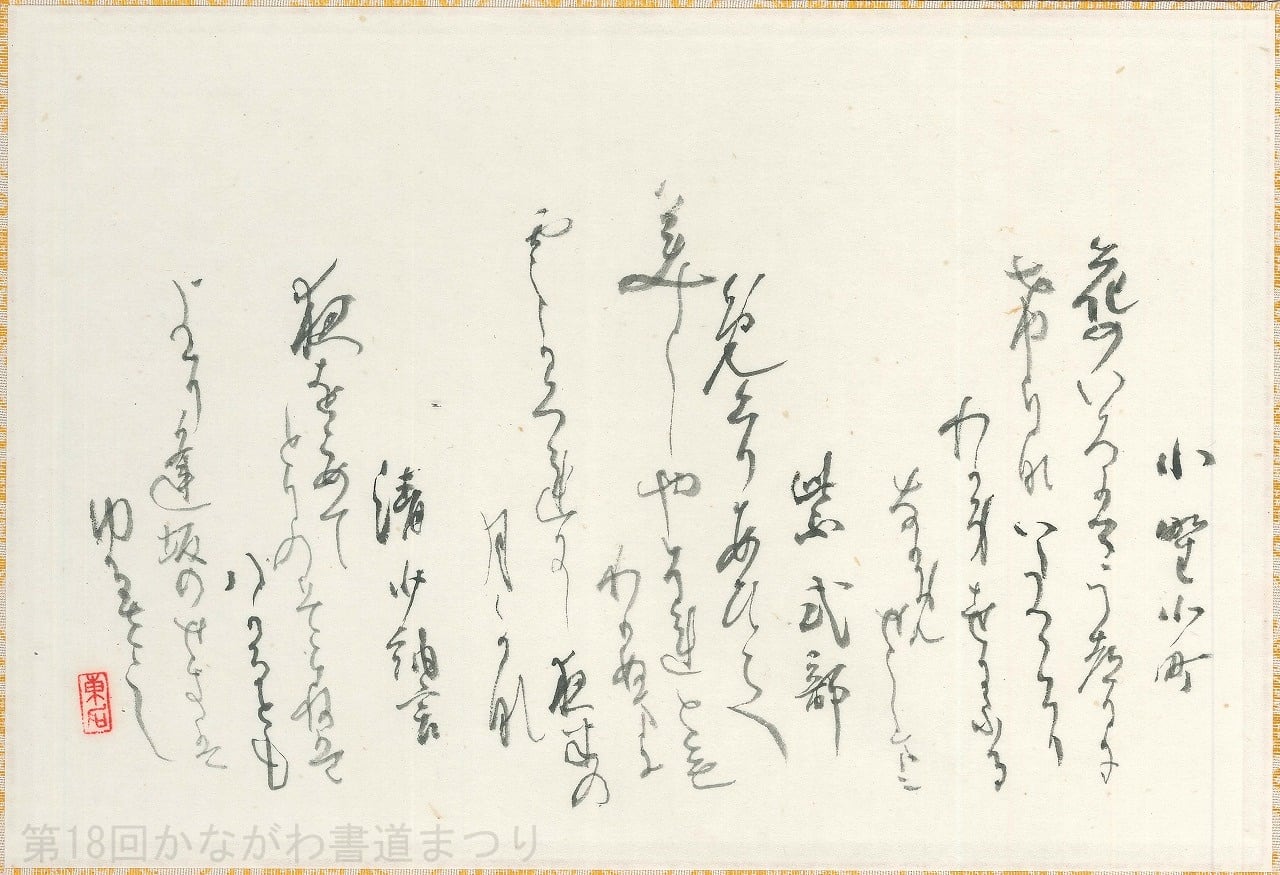 小野小町
花のいろはうつりに
けりないたつらに
わか身世にふる
なかめせしまに
紫式部
めくりあひて
美しやそれとも
わかぬまに
雲かくれにし
夜半の
月かな
清少納言
夜をこめて
とりのそらねは
ハかるとも
よに逢坂のせきは
ゆるさし
第18回かながわ書道まつり